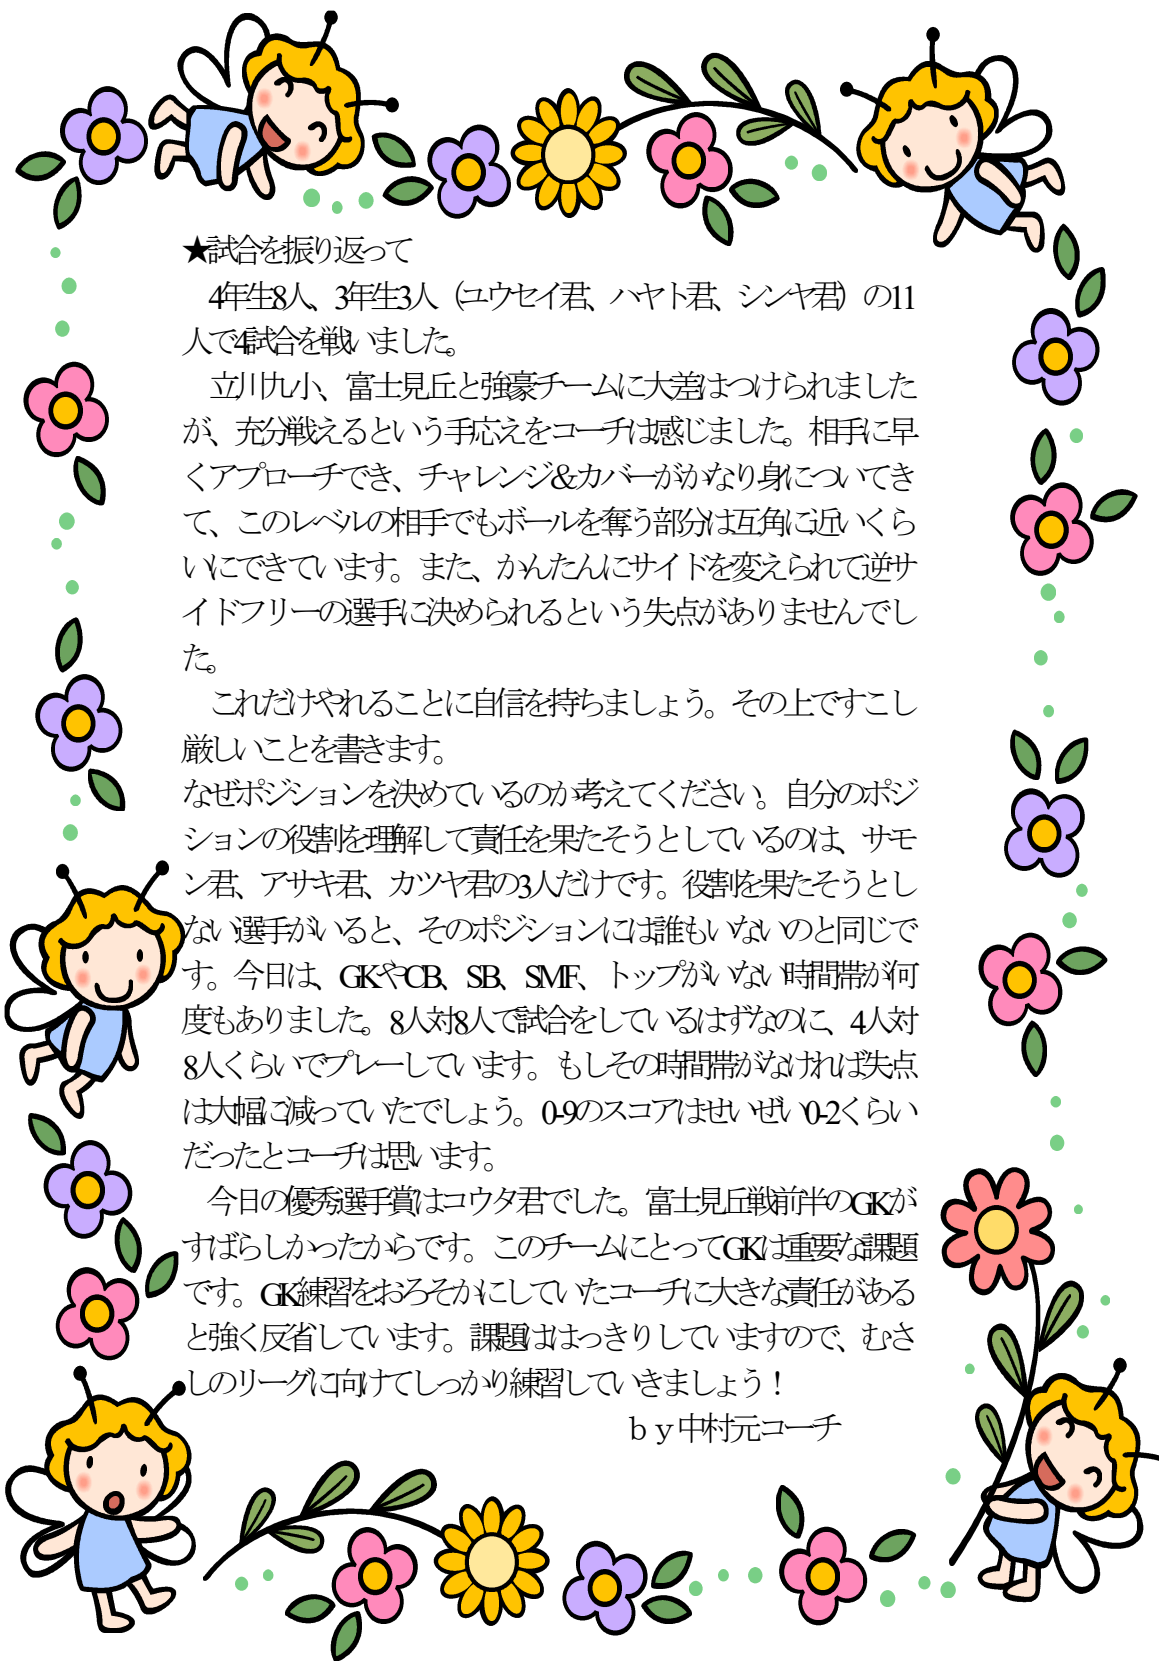 ★試合を振り返って
　4年生8人、3年生3人（ユウセイ君、ハヤト君、シンヤ君）の11
人で4試合を戦いました。
　立川九小、富士見丘と強豪チームに大差はつけられました
が、充分戦えるという手応えをコーチは感じました。相手に早
くアプローチでき、チャレンジ&カバーがかなり身についてき
て、このレベルの相手でもボールを奪う部分は互角に近いくら
いにできています。また、かんたんにサイドを変えられて逆サ
イドフリーの選手に決められるという失点がありませんでし
た。
　これだけやれることに自信を持ちましょう。その上ですこし
厳しいことを書きます。
なぜポジションを決めているのか考えてください。自分のポジ
ションの役割を理解して責任を果たそうとしているのは、サモ
ン君、アサキ君、カツヤ君の3人だけです。役割を果たそうとし
ない選手がいると、そのポジションには誰もいないのと同じで
す。今日は、GKやCB、SB、SMF、トップがいない時間帯が何
度もありました。8人対8人で試合をしているはずなのに、4人対
8人くらいでプレーしています。もしその時間帯がなければ失点
は大幅に減っていたでしょう。0-9のスコアはせいぜい0-2くらい
だったとコーチは思います。
　今日の優秀選手賞はコウタ君でした。富士見丘戦前半のGKが
すばらしかったからです。このチームにとってGKは重要な課題
です。GK練習をおろそかにしていたコーチに大きな責任がある
と強く反省しています。課題ははっきりしていますので、むさ
しのリーグに向けてしっかり練習していきましょう！
ｂｙ中村元コーチ